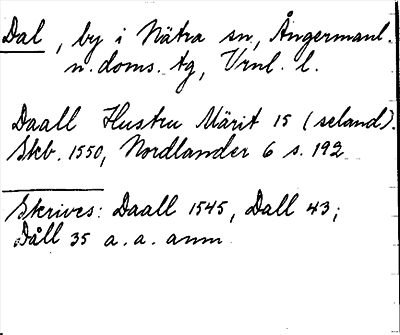 Dal, by i Nätra sn, Ångermanl.
n. doms. tg, Vrnl. l.
Daall Hustru Märit 15 (seland).
Skb. 1550, Nordlander 6 s. 192
Skrives: Daall 1545, Dall 43;
Dåll 35 a. a. anm